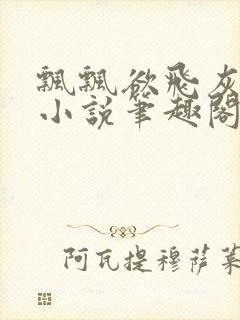 飄飄欲飛灰
小說筆趣閣
阿瓦提穆萨莱